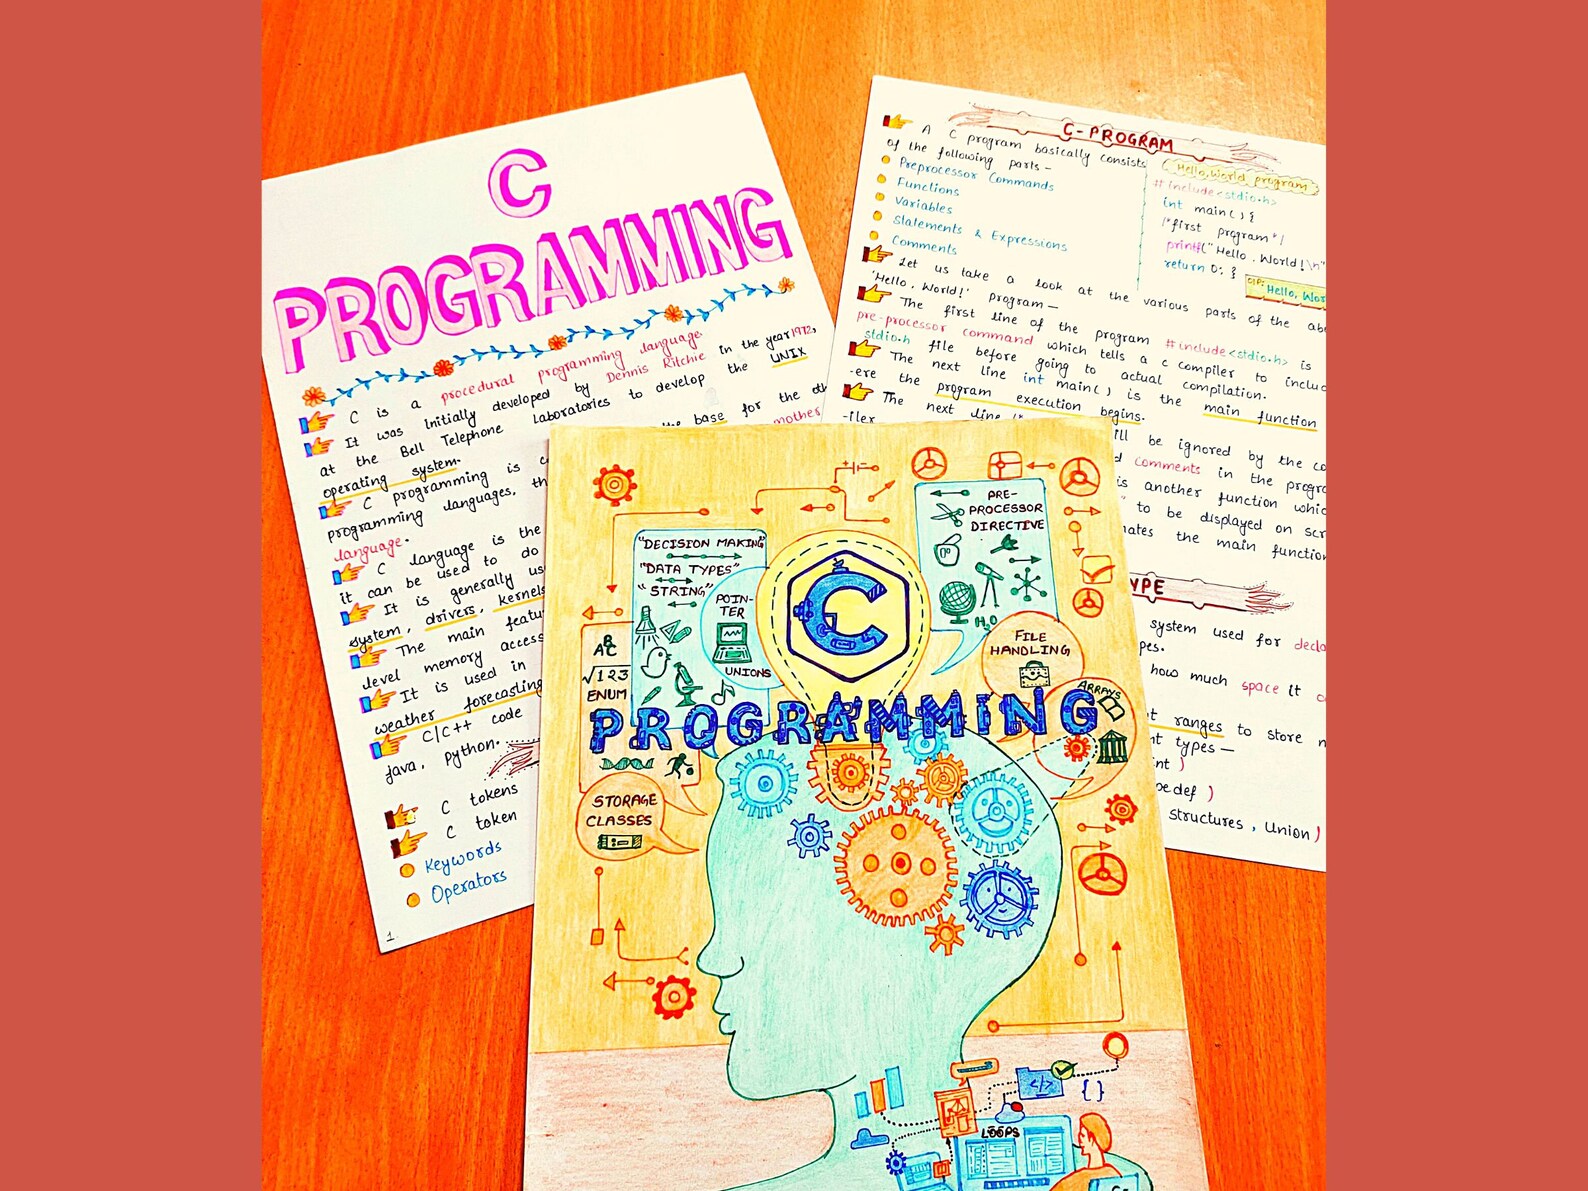 C
PROGRAMMING
C is a procedural programming language.
It was initially developed by Dennis Ritchie in the year 1972,
at the Bell Telephone laboratories to develop the UNIX
operating system.
C programming is
base for the
programming languages,
mother
language.
C language is the
it can be used to do
It is generally
system, drivers, kernels
The main
level memory access
It is used in
weather forecasting
C|C++ code
java, python.
C tokens
C token
Keywords
Operators
1.
C-PROGRAM
A C program basically consists
of the following parts-
Preprocessor Commands
Functions
Variables
Statements & Expressions
Comments
Hello, World program
#include<stdio.h>
int main() {
/*first program*/
printf("Hello, World!\n"
return 0; }
O/P:
Hello,
Let us take a look at the various parts of the
'Hello, World!' program—
The first line of the program #include<stdio.h> is
pre-processor command which tells a c compiler to
stdio.h file before going to actual compilation.
The next line int main() is the main function
-ere the program execution begins.
The next line
-iler
be ignored by the
comments in the
is another function
to be displayed on
the main function
system used for
how much space it
ranges to store
types—
)
)
Structures, Union)
"DECISION MAKING"
"DATA TYPES"
"STRING"
POIN-
TER
UNIONS
PRE-
PROCESSOR
DIRECTIVE
H₂O
C
FILE
HANDLING
ARRAYS
√123
ENUM
PROGRAMMING
STORAGE
CLASSES
</>
{ }
LOOPS